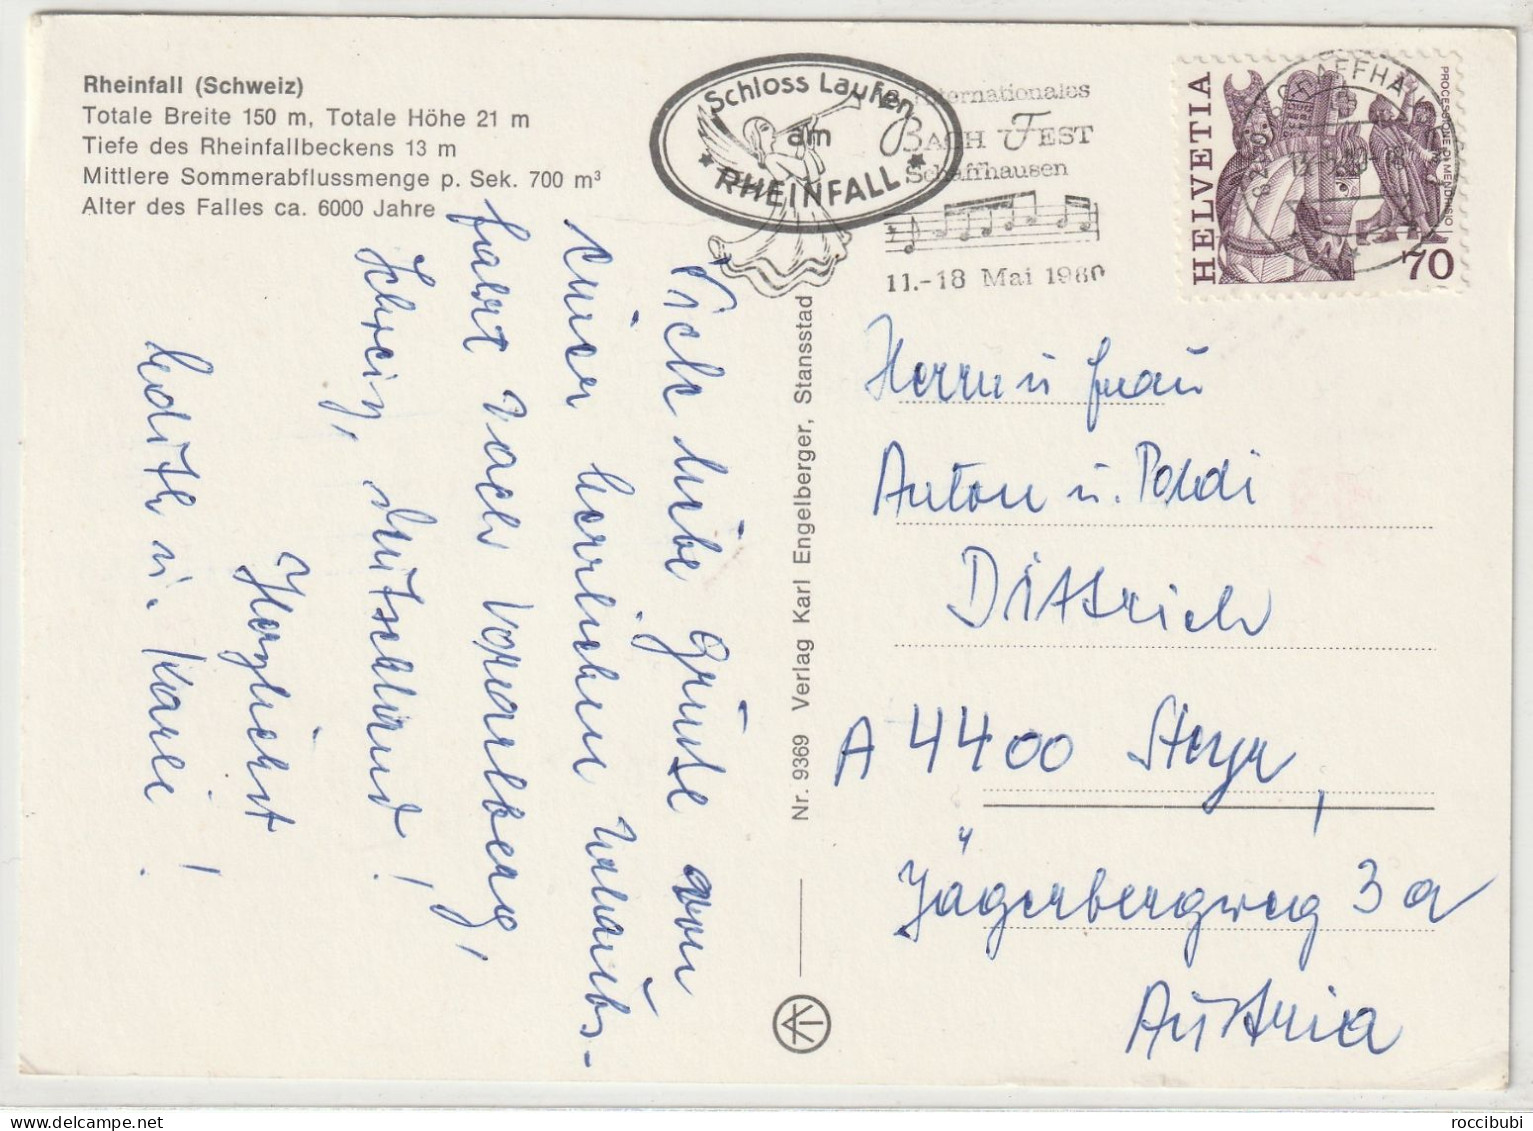 Rheinfall (Schweiz)
Totale Breite 150 m, Totale Höhe 21 m
Tiefe des Rheinfallbeckens 13 m
Mittlere Sommerabflussmenge p. Sek. 700 m³
Alter des Falles ca. 6000 Jahre
Schloss Laufen
am
RHEINFALL
Internationales
BACH FEST
Schaffhausen
11.-18 Mai 1980
HELVETIA
PROCESSIONE DI MENDRISIO
70
8200 SCHAFFHAUSEN
Viele liebe Grüße von
einer herrlichen Urlaubs-
fahrt nach Vorarlberg,
Schweiz, Deutschland!
Herzlichst
Edith u. Karli!
Nr. 9369 Verlag Karl Engelberger, Stansstad
Herrn u Frau
Anton u. Poldi
Dittrich
A 4400 Steyr,
Jägerbergweg 3a
Austria
roccibubi